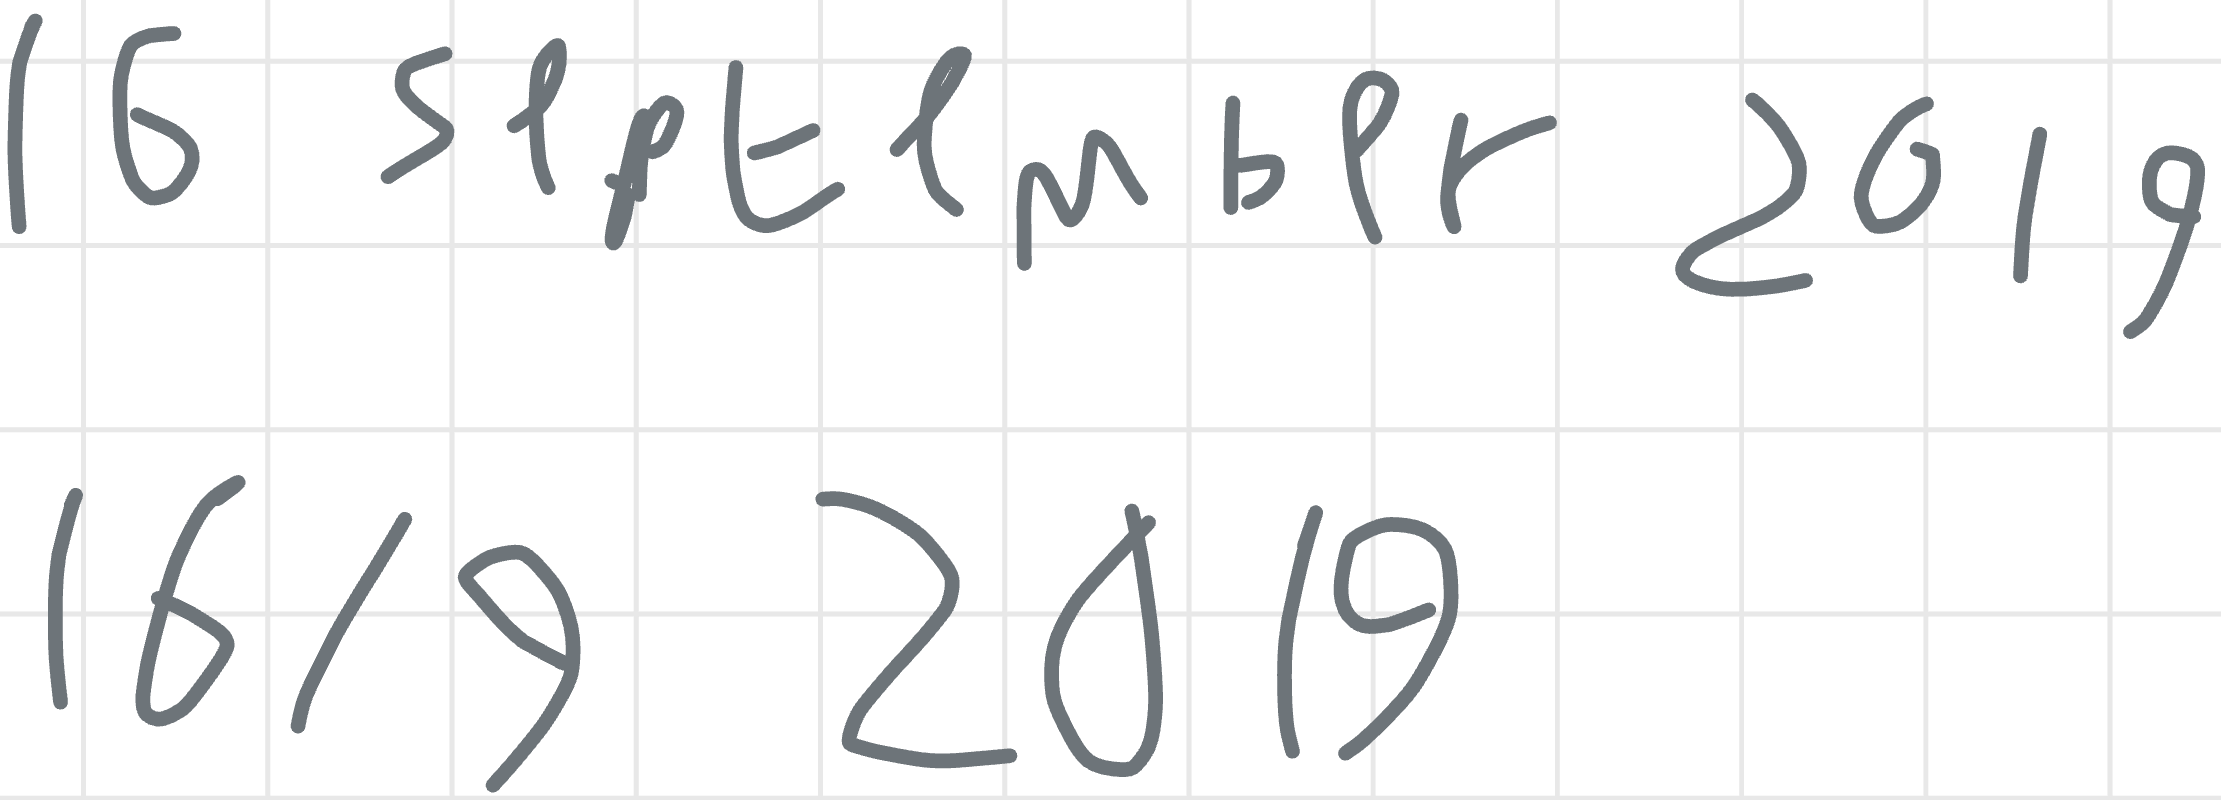 16 September 2019
16/9 2019